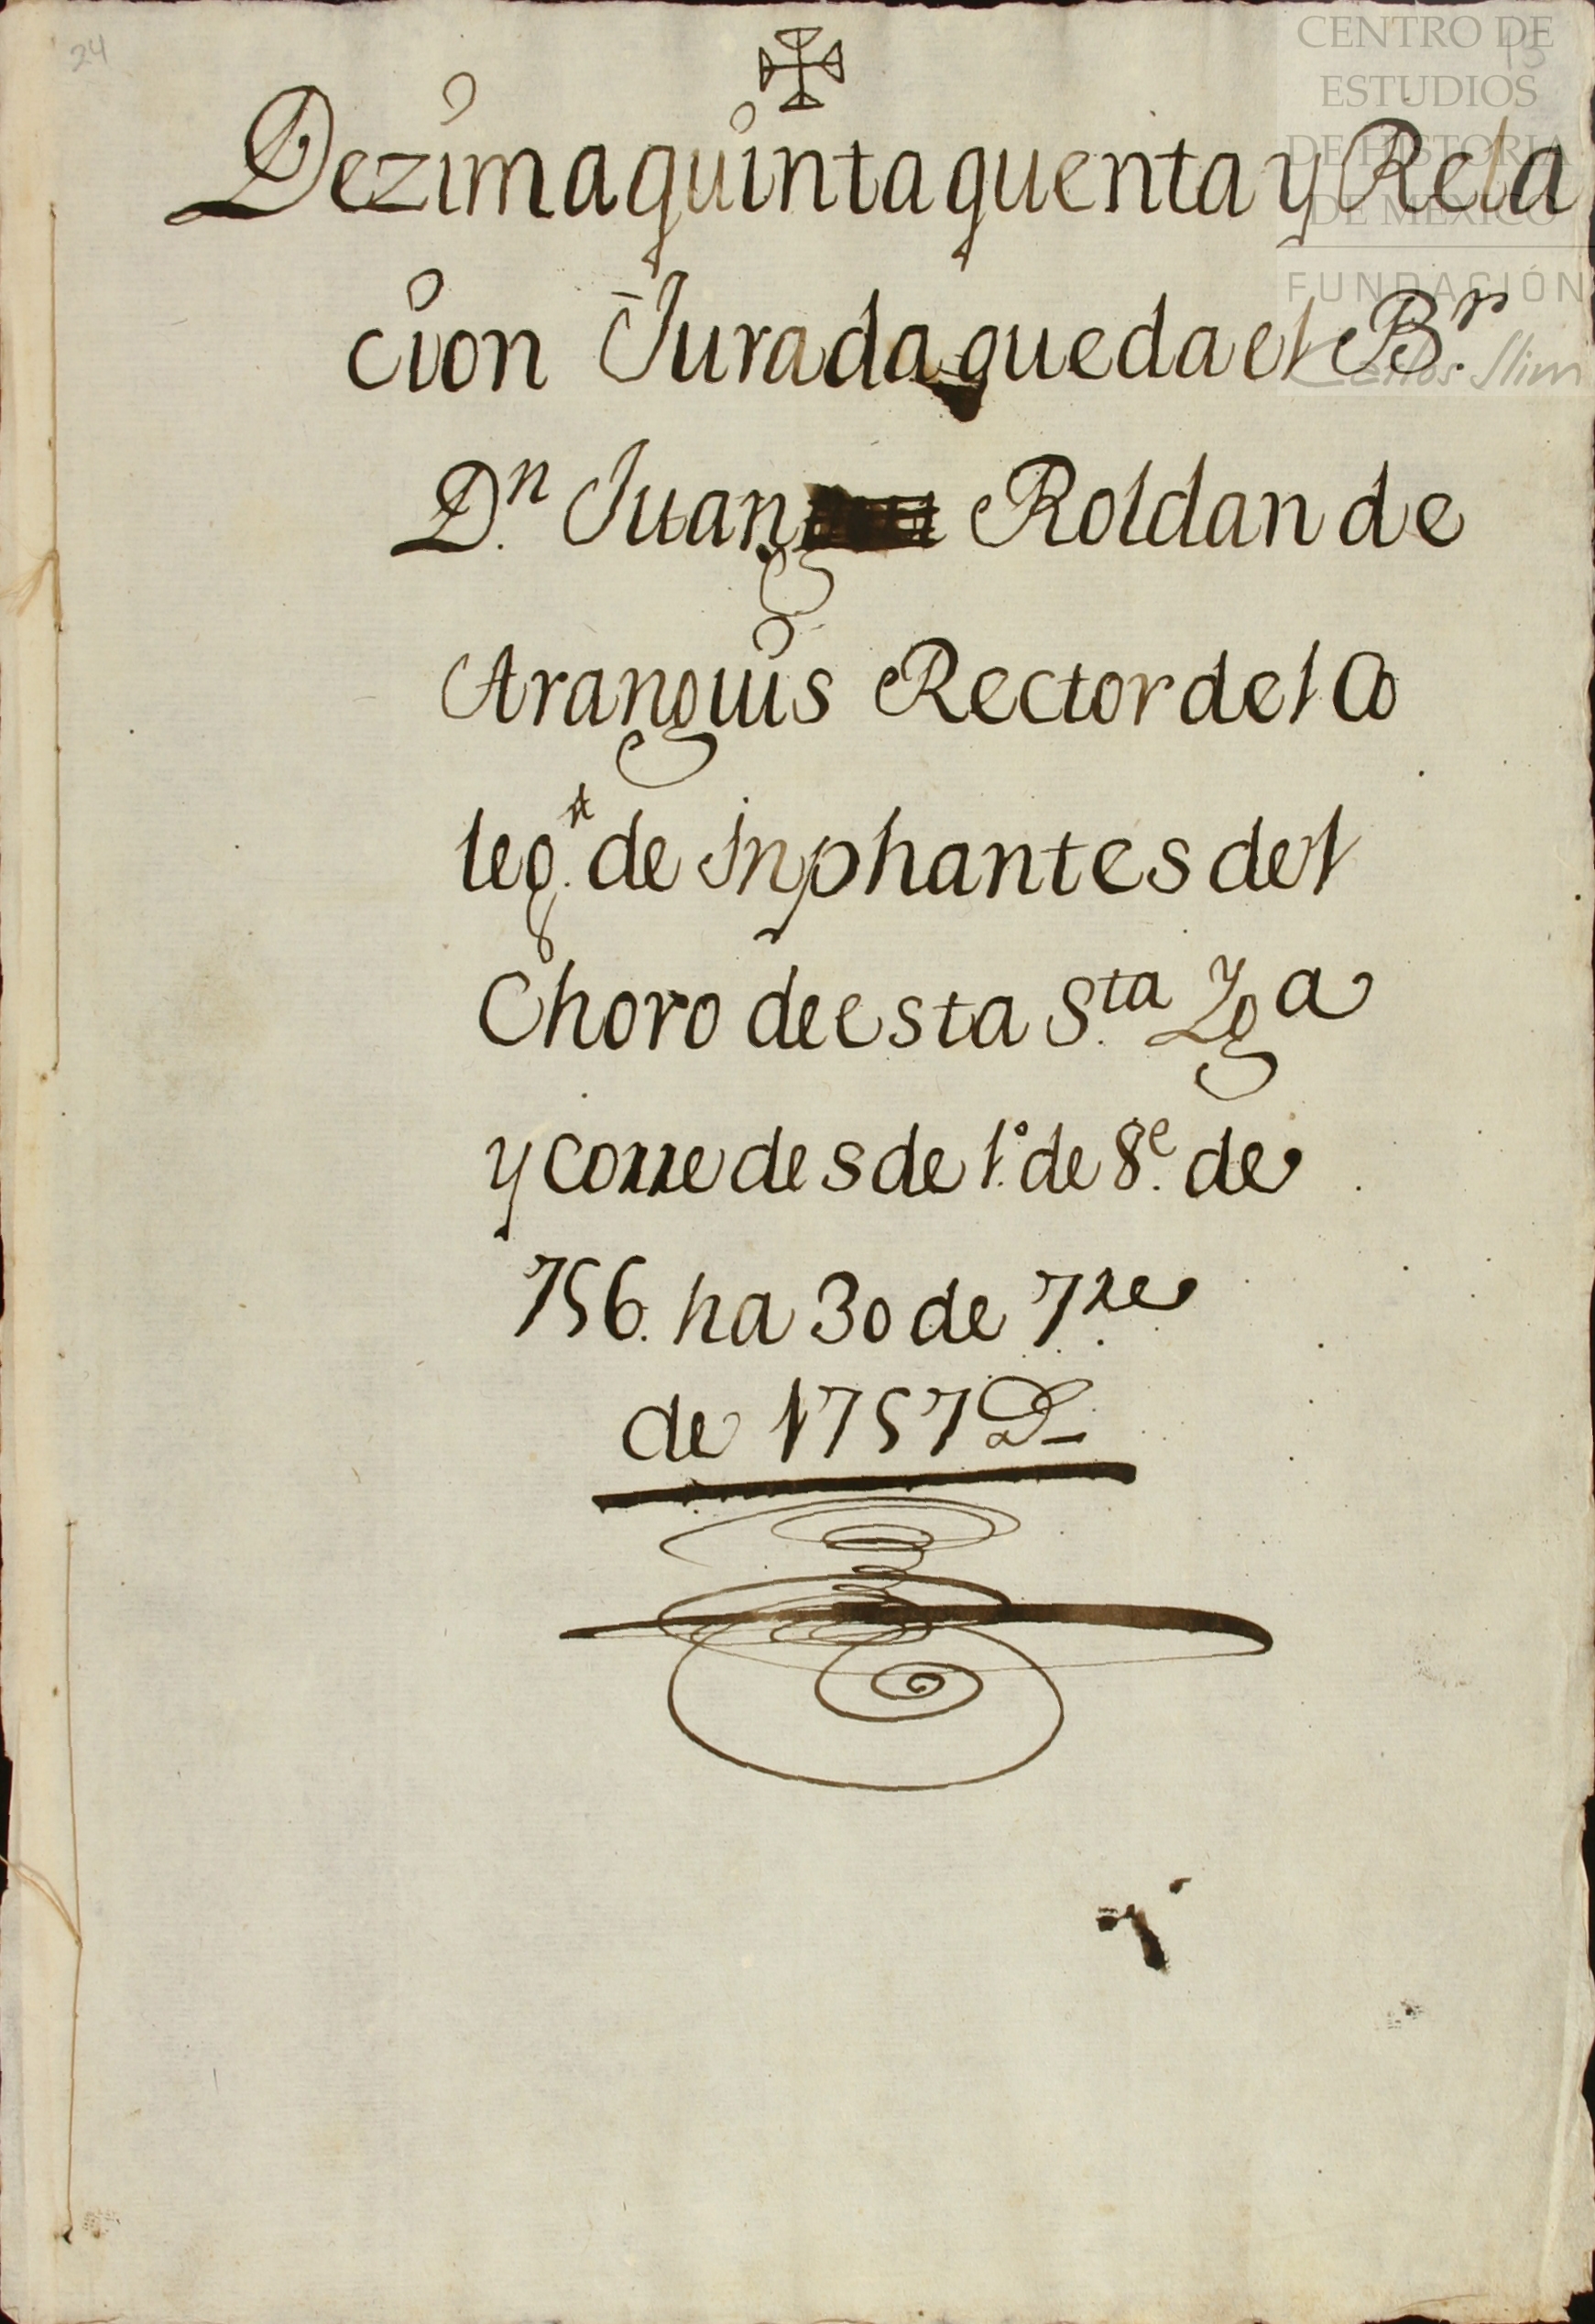 24
CENTRO DE
ESTUDIOS
DE HISTORIA
DE MÉXICO
FUNDACIÓN
Carlos Slim
Dezima quinta quenta y Rela
cion Jurada que da el Br.
Dn. Juan Roldan de
Aranguis Rector del Co
leg. de Inphantes del
Choro de esta Sta. Yga
y corre desde 1º de 8e. de
756. ha 30 de 7re
de 1757